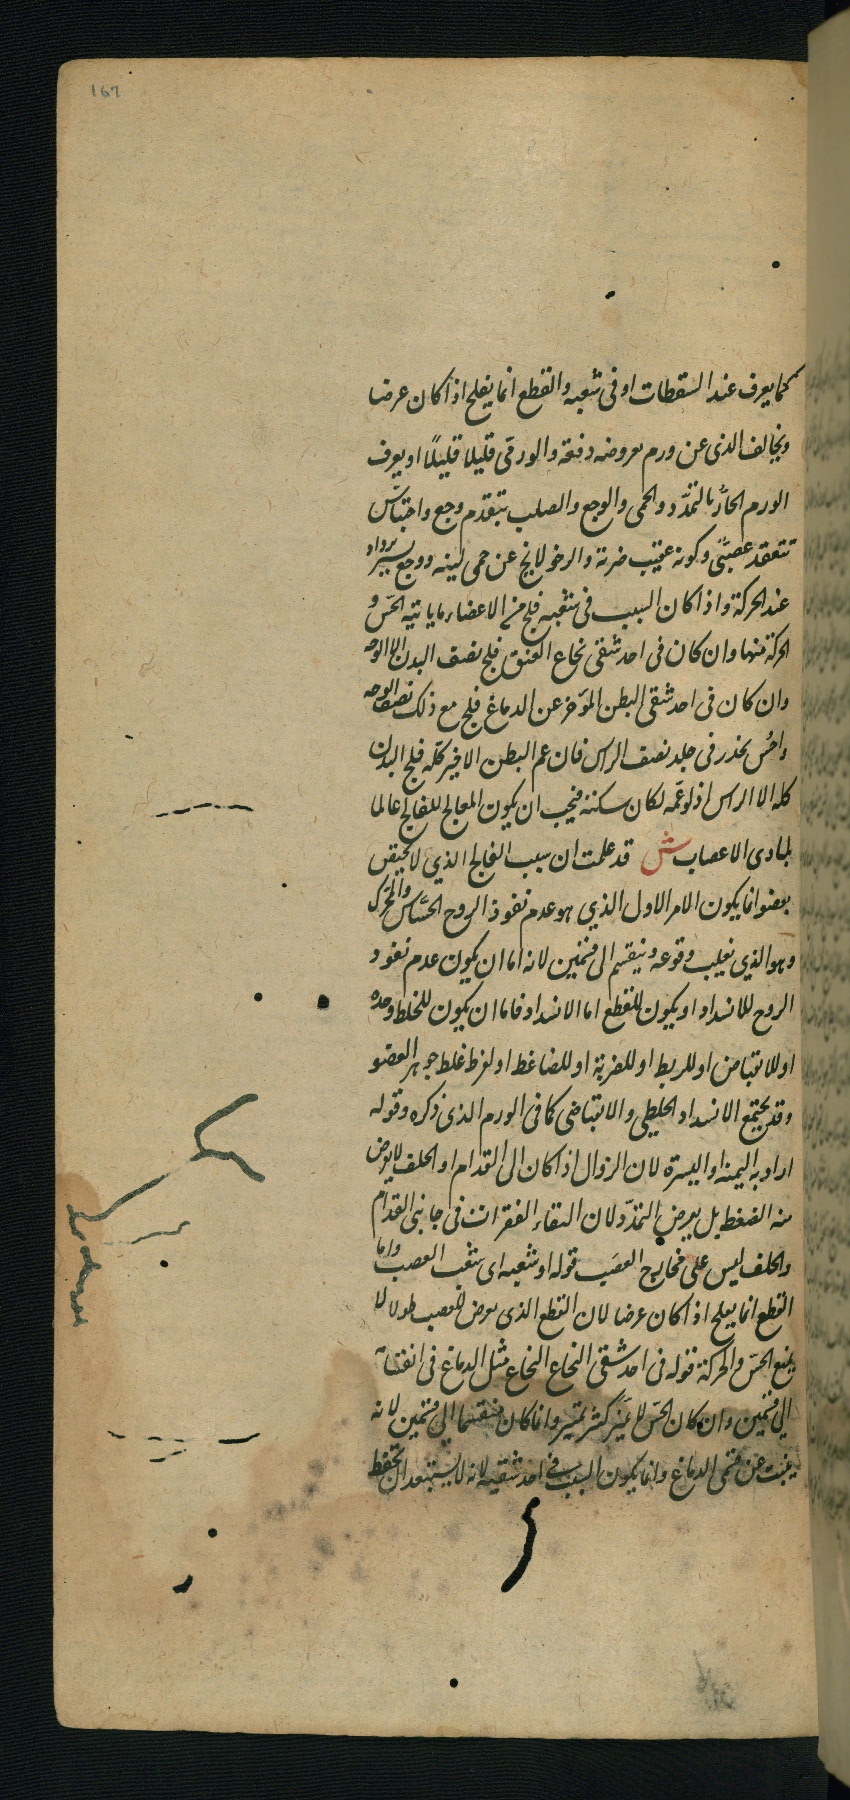 167
كما يعرف عند السقطات او فى شعبه والقطع انما يفلج اذا كان عرضا
ويخالف الذى عن ورم بعروضه دفعة والورمى قليلا قليلًا او يعرف
الورم الحارّ بالتمدّد والحمى والوجع والصلب بتقدم وجع واحتباس
تتعقد عصبىّ وكونه عقيب ضربة والرخو لانج عن حمى لينه ووجع يسير يزداد
عند الحركة واذا كان السبب فى شعبه فلج من الاعضاء ما ياتيه الحسّ و
الحركة منها وان كان فى احد شقى نخاع العنق فلج نصف البدن الا الوجه
وان كان فى احد شقى البطن المؤخر عن الدماغ فلج مع ذلك نصف الوجه
واحُس بخدر فى جلد نصف الراس فان عم البطن الاخير كلّه فلج البدن
كله الا الراس اذ لو عمّه لكان سكتة فيجب ان يكون المعالج للفالج عالما
بمبادى الاعصاب ش قد علمت ان سبب الفالج الذي لا يختص
بعضو انما يكون الامر الاول الذي هو عدم نفوذ الروح الحسّاس والمحرك
وهو الذي يغلب وقوعه وينقسم الى قسمين لانه اما ان يكون عدم نفوذ
الروح للانسداد او يكون للقطع اما الانسداد فاما ان يكون للخلط وحده
او للانقباض او للربط او للضربة او للضاغط او لفرط غلظ جوهر العضو
وقد يجتمع الانسداد الخلطي والانقباضى كما فى الورم الذى ذكره وقوله
اراد به اليمنة او اليسرة لان الزوال اذا كان الى القدام او الخلف لا يعرض
منه الضغط بل يعرض التمدّد لان التقاء الفقرات فى جانبى القدام
والخلف ليس على مخارج العصَب قوله او شعبه اى شعب العصب واما
القطع انما يفلج اذا كان عرضا لان القطع الذى يعرض للعصب طولا لا
يمنع الحسّ والحركة قوله فى احد شقى النخاع النخاع مثل الدماغ فى انقسامه
الي قسمين وان كان الحسّ لا يميز كثير تميير وانما كان منقسما الي قسمين لانه
ينبت عن قسمى الدماغ وانما يكون السبب فى احد شقيه لانه لا يستبعد ان تحفظ